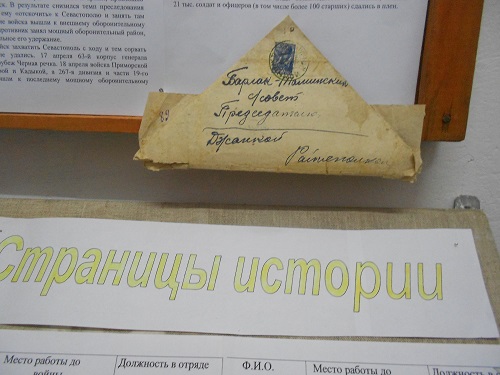 в. В результате снизился темп преследования
ему «отскочить» к Севастополю и занять там
войска вышли к внешнему оборонительному
противник занял мощный оборонительный район,
льное его удержание.
захватить Севастополь с ходу и тем сорвать
не удались. 17 апреля 63-й корпус генерала
рубеж Черная речка, 18 апреля войска Приморской
и Кадыкой, а 267-я дивизия и части 19-го
шли к последнему мощному оборонительному
21 тыс. солдат и офицеров (в том числе более 100 старших) сдались в плен.
Совет
Председателю
Джанкой
Страницы истории
Место работы до войны
Должность в отряде
Ф.И.О.
Место работы до
Должность в